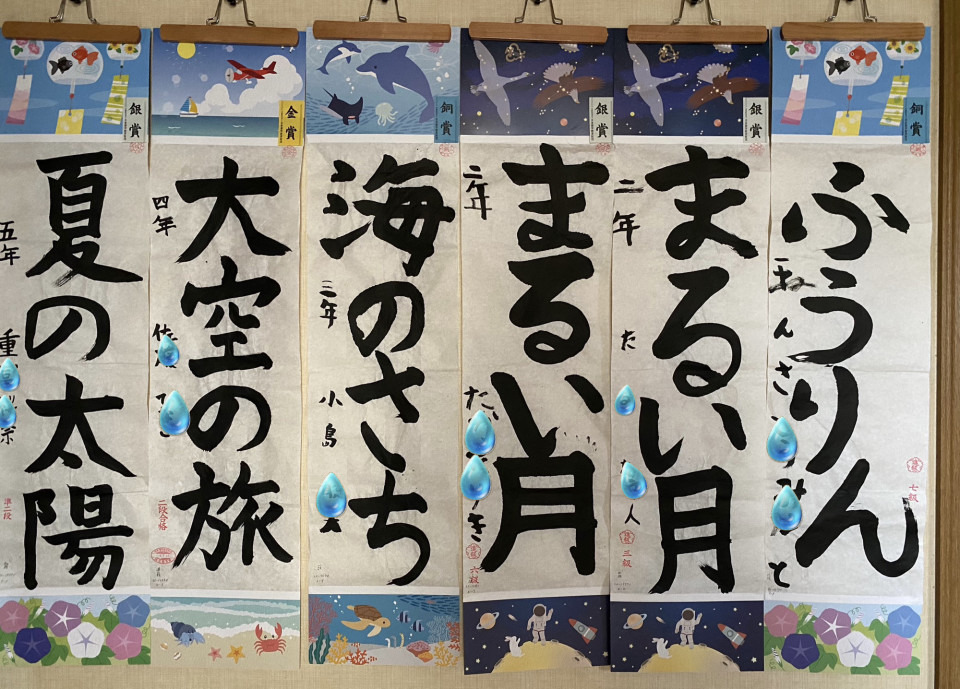 銅賞
ふうりん
一ねん さ と
七級
銀賞
まるい月
二年 た 人
三級
銀賞
まるい月
二年 た き
六級
銅賞
海のさち
三年 小島
金賞
大空の旅
四年 佐
二段合格
銀賞
夏の太陽
五年 重
準二段